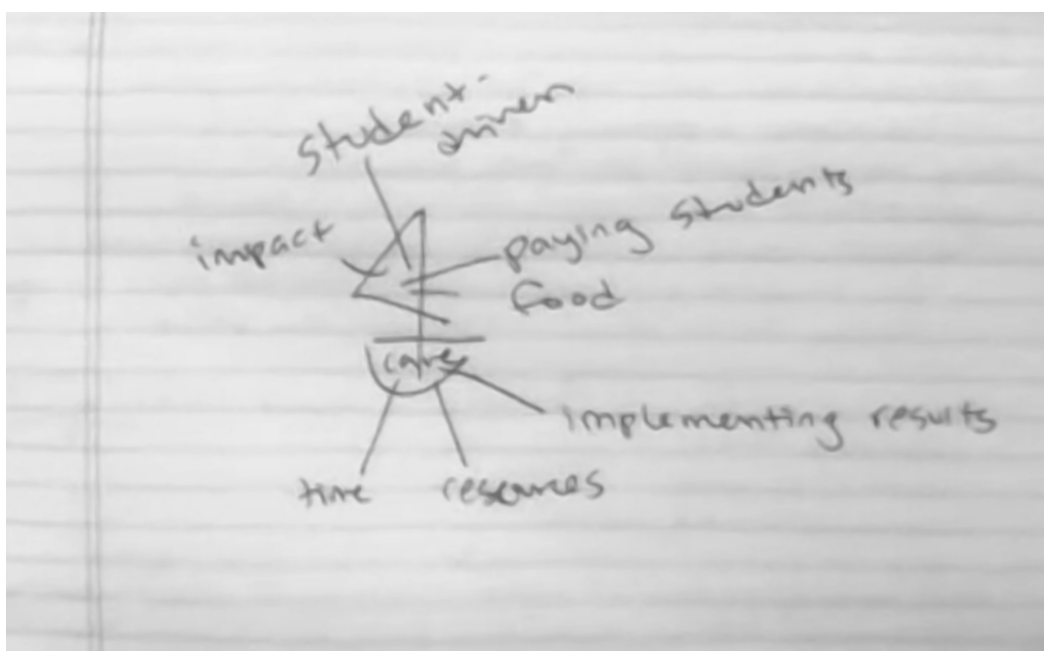 student-
driven
impact
paying students
food
implementing results
time
resources